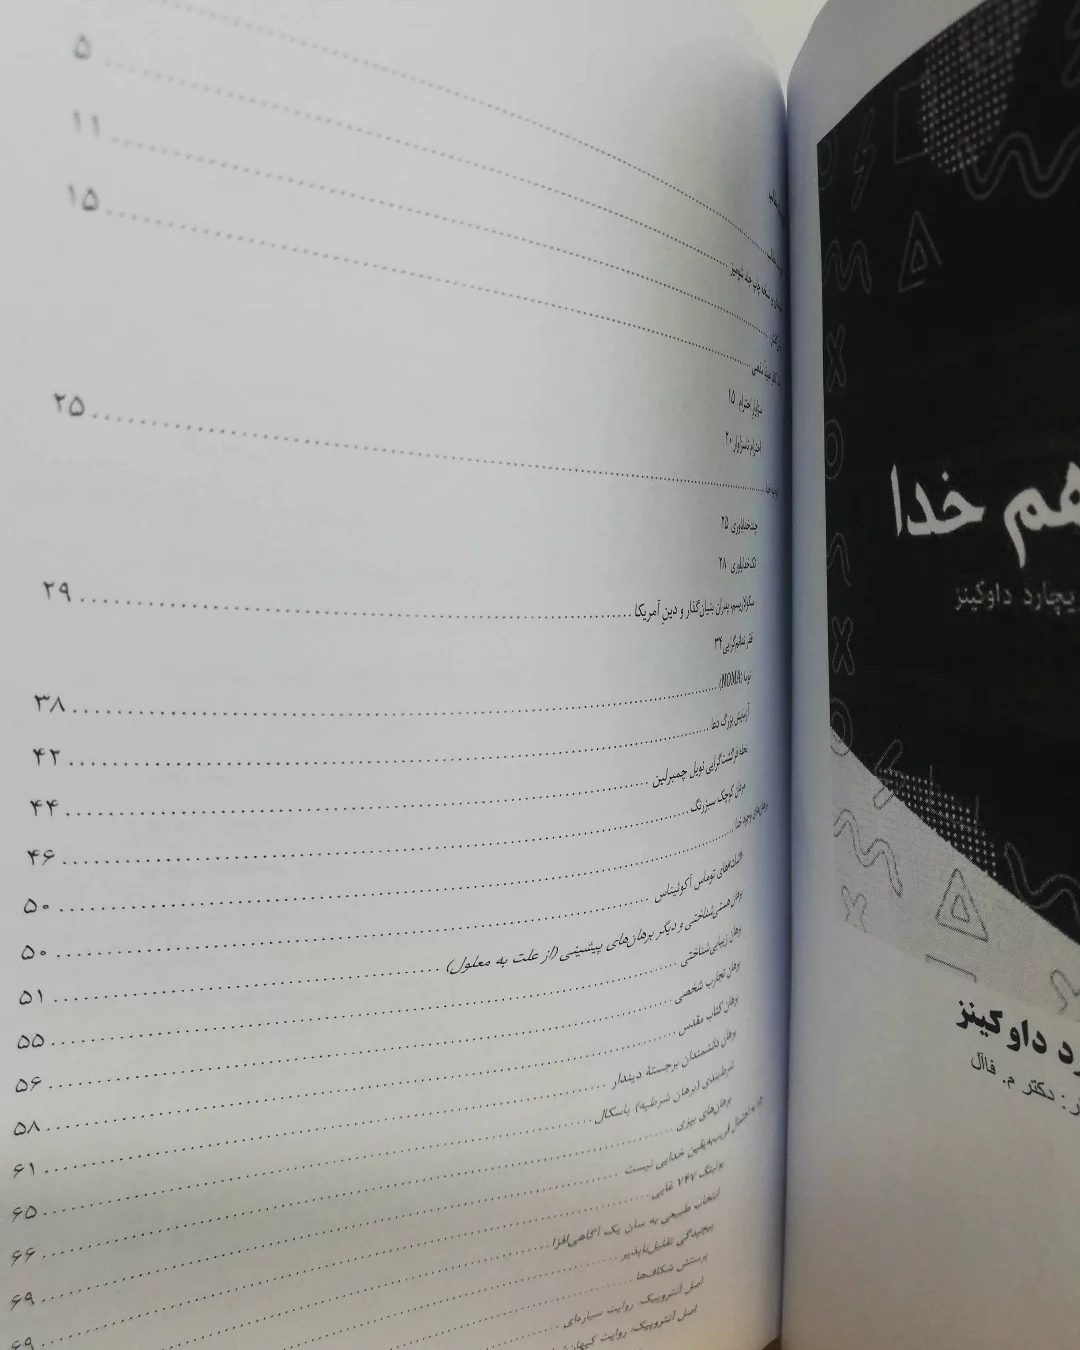 هم خدا
یچارد داوکینز
د داوکینز
ر: دکتر م. فاآل
۵
۱۱
۱۵
سزاوار احترام ۱۵
احترام ناسزاوار ۲۰
۲۵
چندخداباوری ۲۵
تک‌خداباوری ۲۸
سکولاریسم، پدران بنیان‌گذار و دینِ آمریکا ۲۹
فقر ندانم‌گرایی ۳۴
نوما (NOMA) ۳۸
آزمایش بزرگ دعا ۴۲
نحله فرگشت‌گرایی نویل چمبرلین ۴۴
مردان کوچک سبزرنگ ۴۶
برهان‌های وجود خدا ۵۰
اثبات‌های توماس آکوئیناس ۵۰
برهان هستی‌شناختی و دیگر برهان‌های پیشینی (از علت به معلول) ۵۱
برهان زیبایی‌شناختی ۵۵
برهان تجارب شخصی ۵۶
برهان کتاب مقدس ۵۸
برهان دانشمندان برجستهٔ دیندار ۶۱
شرطبندی (برهان شرطیه) پاسکال ۶۵
برهان‌های بیزی ۶۶
چرا به احتمال قریب‌به‌یقین خدایی نیست ۶۹
بوئینگ ۷۴۷ غایی ۶۹
انتخاب طبیعی به سان یک آگاهی‌افزا
پیچیدگی تقلیل‌ناپذیر
پرستش شکاف‌ها
اصل آنتروپیک: روایت سیاره‌ای
اصل آنتروپیک: روایت